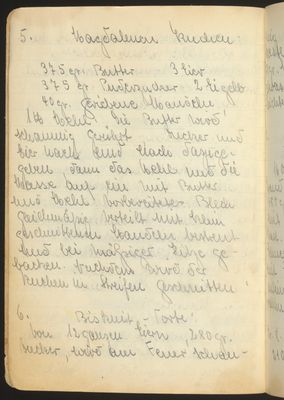 5. Magdalenen Landeu:
375 gr. Butter 3 Eier
375 gr. Puderzucker 2 Eigelb
40 gr. geriebene Mandeln
1 ℔ Mehl. Die Butter wird
schaumig gerührt Zucker und
Eier nach und nach dazuge-
geben dann das Mehl und die
Masse auf ein mit Butter
und Mehl vorbereitetes Blech
gleichmäßig verteilt mit klein
geschnittenen Mandeln bestreut
und bei mäßiger Hitze ge-
backen. Nachdem wird der
Kuchen in Streifen geschnitten
6. Biskuit-Torte:
Von 12 ganzen Eiern, 280 gr.
Zucker, wird am Feuer schau-